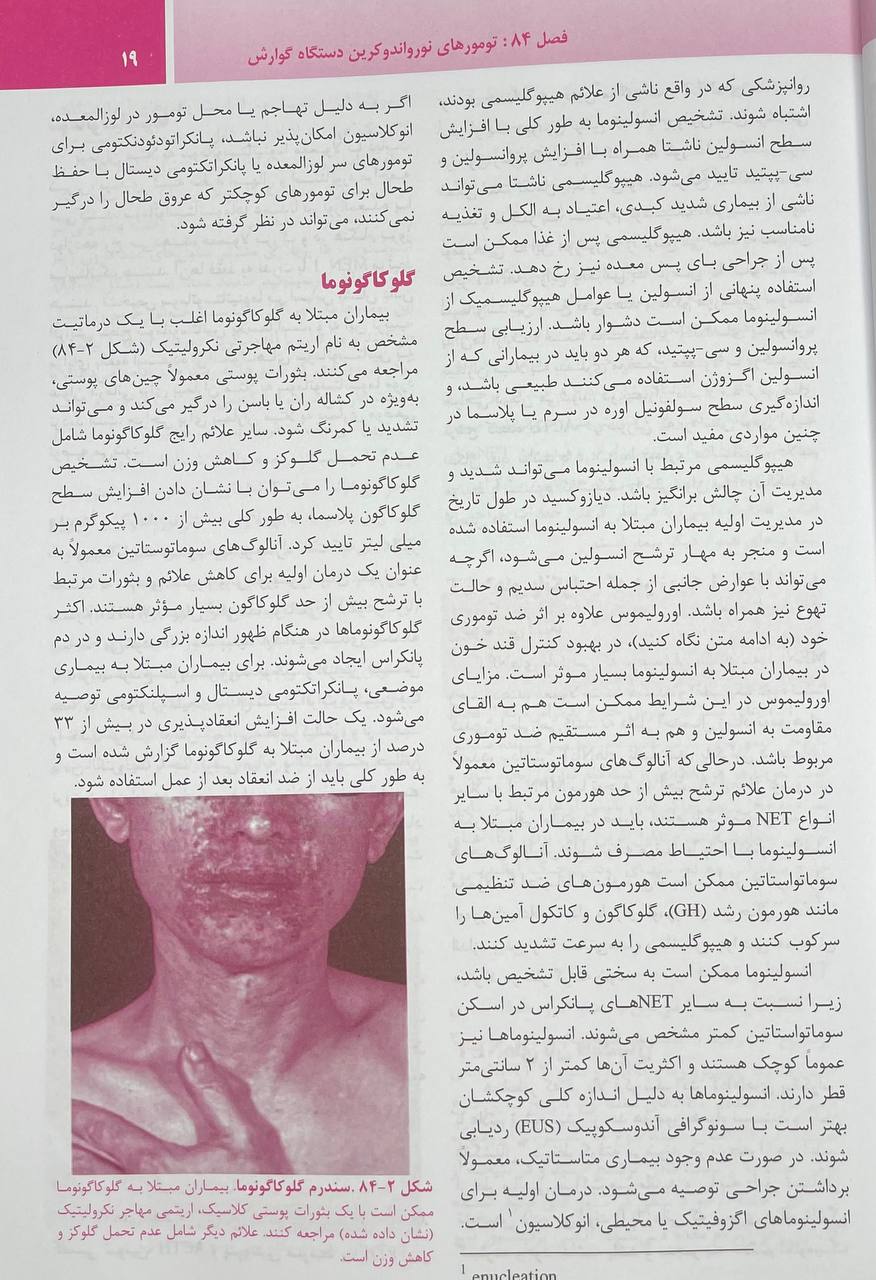 ۱۹
فصل ۸۴: تومورهای نورواندوکرین دستگاه گوارش
روانپزشکی که در واقع ناشی از علائم هیپوگلیسمی بودند،
اشتباه شوند. تشخیص انسولینوما به طور کلی با افزایش
سطح انسولین ناشتا همراه با افزایش پروانسولین و
سی-پپتید تایید می‌شود. هیپوگلیسمی ناشتا می‌تواند
ناشی از بیماری شدید کبدی، اعتیاد به الکل و تغذیه
نامناسب نیز باشد. هیپوگلیسمی پس از غذا ممکن است
پس از جراحی بای پس معده نیز رخ دهد. تشخیص
استفاده پنهانی از انسولین یا عوامل هیپوگلیسمیک از
انسولینوما ممکن است دشوار باشد. ارزیابی سطح
پروانسولین و سی-پپتید، که هر دو باید در بیمارانی که از
انسولین اگزوژن استفاده می‌کنند طبیعی باشد، و
اندازه‌گیری سطح سولفونیل اوره در سرم یا پلاسما در
چنین مواردی مفید است.
هیپوگلیسمی مرتبط با انسولینوما می‌تواند شدید و
مدیریت آن چالش برانگیز باشد. دیازوکسید در طول تاریخ
در مدیریت اولیه بیماران مبتلا به انسولینوما استفاده شده
است و منجر به مهار ترشح انسولین می‌شود، اگرچه
می‌تواند با عوارض جانبی از جمله احتباس سدیم و حالت
تهوع نیز همراه باشد. اورولیموس علاوه بر اثر ضد توموری
خود (به ادامه متن نگاه کنید)، در بهبود کنترل قند خون
در بیماران مبتلا به انسولینوما بسیار موثر است. مزایای
اورولیموس در این شرایط ممکن است هم به القای
مقاومت به انسولین و هم به اثر مستقیم ضد توموری
مربوط باشد. درحالی‌که آنالوگ‌های سوماتوستاتین معمولاً
در درمان علائم ترشح بیش از حد هورمون مرتبط با سایر
انواع NET موثر هستند، باید در بیماران مبتلا به
انسولینوما با احتیاط مصرف شوند. آنالوگ‌های
سوماتواستاتین ممکن است هورمون‌های ضد تنظیمی
مانند هورمون رشد (GH)، گلوکاگون و کاتکول آمین‌ها را
سرکوب کنند و هیپوگلیسمی را به سرعت تشدید کنند.
انسولینوما ممکن است به سختی قابل تشخیص باشد،
زیرا نسبت به سایر NETهای پانکراس در اسکن
سوماتواستاتین کمتر مشخص می‌شوند. انسولینوماها نیز
عموماً کوچک هستند و اکثریت آن‌ها کمتر از ۲ سانتی‌متر
قطر دارند. انسولینوماها به دلیل اندازه کلی کوچکشان
بهتر است با سونوگرافی آندوسکوپیک (EUS) ردیابی
شوند. در صورت عدم وجود بیماری متاستاتیک، معمولاً
برداشتن جراحی توصیه می‌شود. درمان اولیه برای
انسولینوماهای اگزوفیتیک یا محیطی، انوکلاسیون¹ است.
¹ enucleation
اگر به دلیل تهاجم یا محل تومور در لوزالمعده،
انوکلاسیون امکان‌پذیر نباشد، پانکراتودئودنکتومی برای
تومورهای سر لوزالمعده یا پانکراتکتومی دیستال با حفظ
طحال برای تومورهای کوچکتر که عروق طحال را درگیر
نمی‌کنند، می‌تواند در نظر گرفته شود.
گلوکاگونوما
بیماران مبتلا به گلوکاگونوما اغلب با یک درماتیت
مشخص به نام اریتم مهاجرتی نکرولیتیک (شکل ۲-۸۴)
مراجعه می‌کنند. بثورات پوستی معمولاً چین‌های پوستی،
به‌ویژه در کشاله ران یا باسن را درگیر می‌کند و می‌تواند
تشدید یا کمرنگ شود. سایر علائم رایج گلوکاگونوما شامل
عدم تحمل گلوکز و کاهش وزن است. تشخیص
گلوکاگونوما را می‌توان با نشان دادن افزایش سطح
گلوکاگون پلاسما، به طور کلی بیش از ۱۰۰۰ پیکوگرم بر
میلی لیتر تایید کرد. آنالوگ‌های سوماتوستاتین معمولاً به
عنوان یک درمان اولیه برای کاهش علائم و بثورات مرتبط
با ترشح بیش از حد گلوکاگون بسیار مؤثر هستند. اکثر
گلوکاگونوماها در هنگام ظهور اندازه بزرگی دارند و در دم
پانکراس ایجاد می‌شوند. برای بیماران مبتلا به بیماری
موضعی، پانکراتکتومی دیستال و اسپلنکتومی توصیه
می‌شود. یک حالت افزایش انعقادپذیری در بیش از ۳۳
درصد از بیماران مبتلا به گلوکاگونوما گزارش شده است و
به طور کلی باید از ضد انعقاد بعد از عمل استفاده شود.
شکل ۲-۸۴ .سندرم گلوکاگونوما. بیماران مبتلا به گلوکاگونوما
ممکن است با یک بثورات پوستی کلاسیک، اریتمی مهاجر نکرولیتیک
(نشان داده شده) مراجعه کنند. علائم دیگر شامل عدم تحمل گلوکز و
کاهش وزن است.